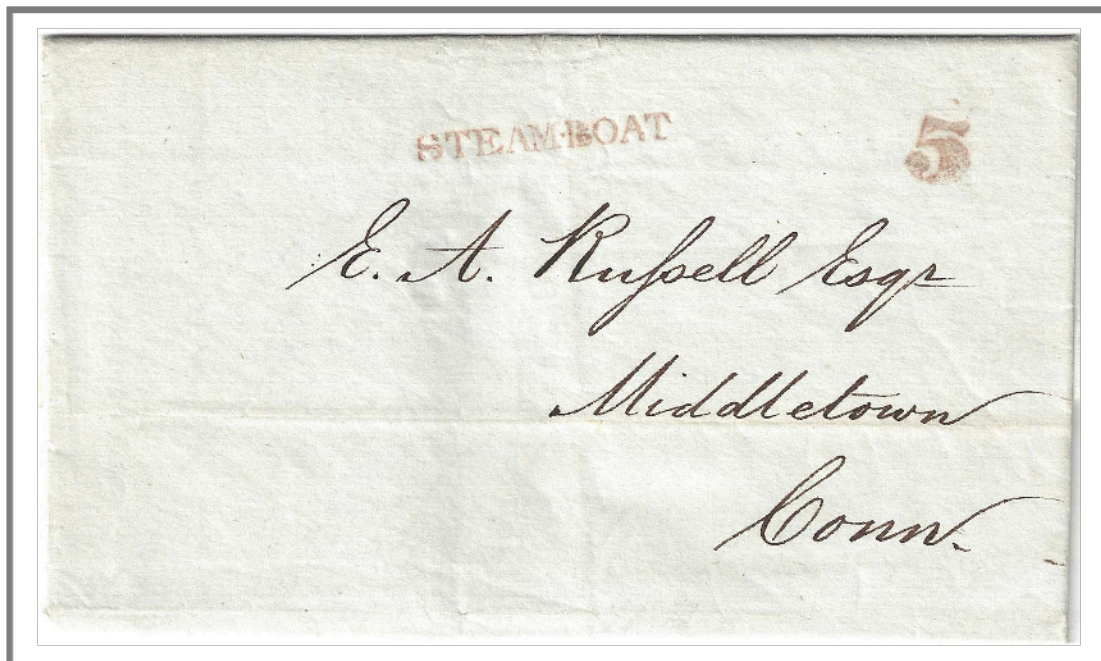 STEAM·BOAT
5
E. A. Ruſsell Esqr
Middletown
Conn.